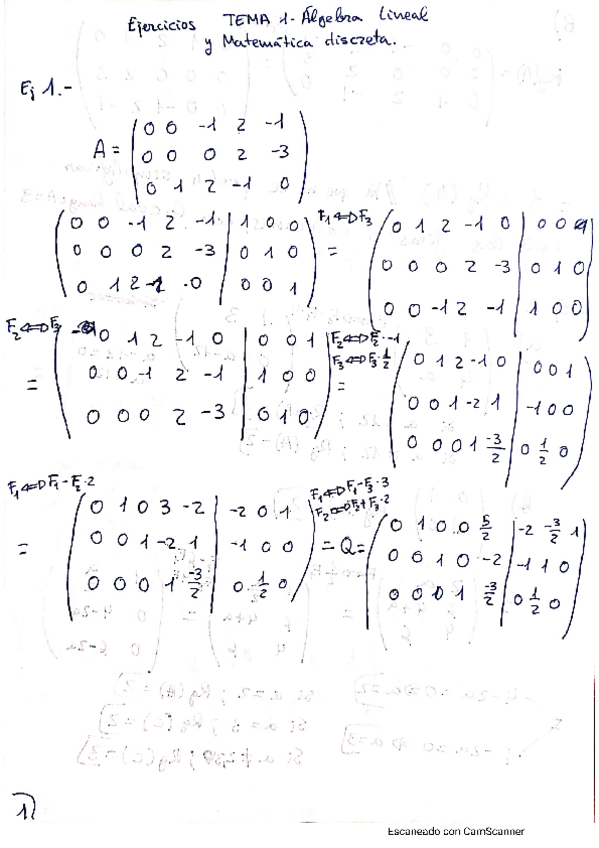 Ejercicios TEMA 1-Álgebra Lineal
y Matemática discreta.
Ej 1.-
A = ( 0 0 -1 2 -1
0 0 0 2 -3
0 1 2 -1 0 )
( 0 0 -1 2 -1 | 1 0 0
0 0 0 2 -3 | 0 1 0
0 1 2 -1 0 | 0 0 1 )
=
F1 ⇔ F3
( 0 1 2 -1 0 | 0 0 1
0 0 0 2 -3 | 0 1 0
0 0 -1 2 -1 | 1 0 0 )
F2 ⇔ F3
=
( 0 1 2 -1 0 | 0 0 1
0 0 -1 2 -1 | 1 0 0
0 0 0 2 -3 | 0 1 0 )
F2 ⇔ F2 · -1
F3 ⇔ F3 · 1/2
=
( 0 1 2 -1 0 | 0 0 1
0 0 1 -2 1 | -1 0 0
0 0 0 1 -3/2 | 0 1/2 0 )
F1 ⇔ F1 - F2 · 2
=
( 0 1 0 3 -2 | -2 0 1
0 0 1 -2 1 | -1 0 0
0 0 0 1 -3/2 | 0 1/2 0 )
F1 ⇔ F1 - F3 · 3
F2 ⇔ F2 + F3 · 2
= Q =
( 0 1 0 0 5/2 | -2 -3/2 1
0 0 1 0 -2 | -1 1 0
0 0 0 1 -3/2 | 0 1/2 0 )
1)
Escaneado con CamScanner